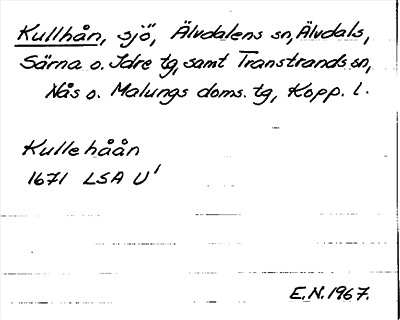 Kullhån, sjö, Älvdalens sn, Älvdals,
Särna o. Idre tg, samt Transtrands sn,
Nås o. Malungs doms. tg, Kopp. l.
Kullehåån
1671 LSA U¹
E.N. 1967.